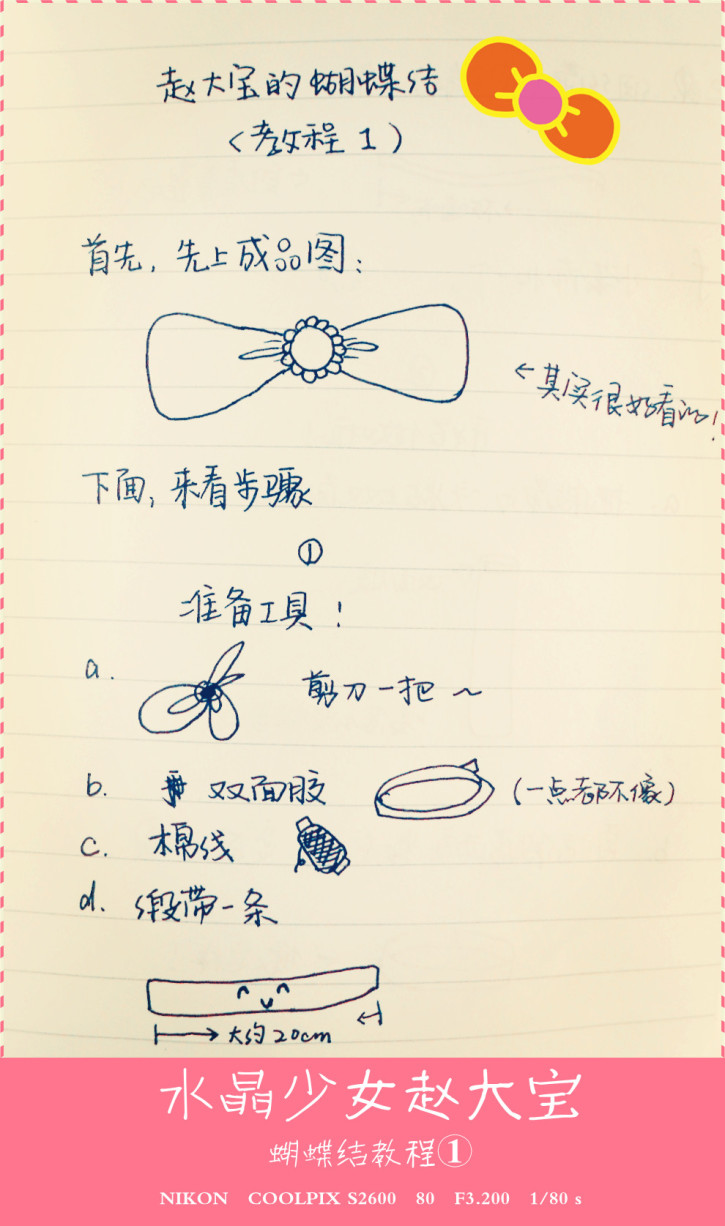 赵大宝的蝴蝶结
（教程1）
首先，先上成品图：
←其实很好看的！
下面，来看步骤
①
准备工具！
a. 剪刀一把～
b. 双面胶 （一点都不像）
c. 棉线
d. 缎带一条
大约20cm
水晶少女赵大宝
蝴蝶结教程①
NIKON COOLPIX S2600 80 F3.200 1/80 s